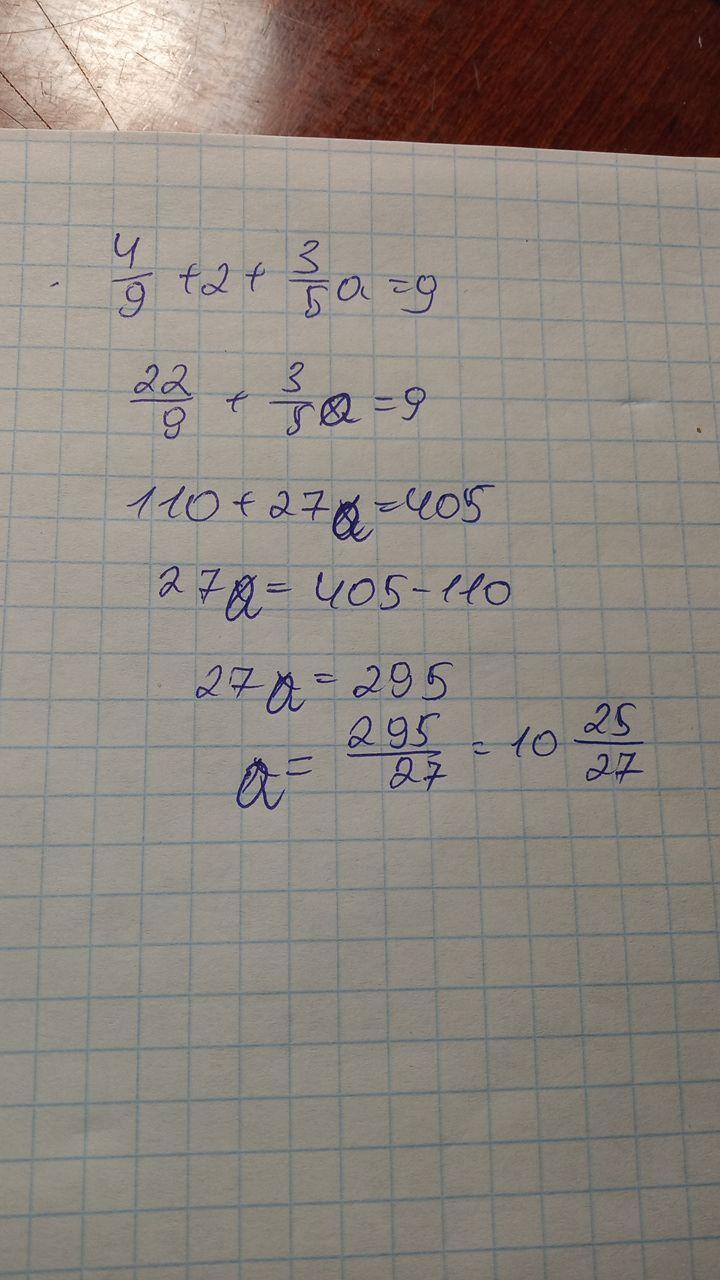 4/9 + 2 + 3/5 a = 9
22/9 + 3/5 a = 9
110 + 27a = 405
27a = 405 - 110
27a = 295
a = 295/27 = 10 25/27